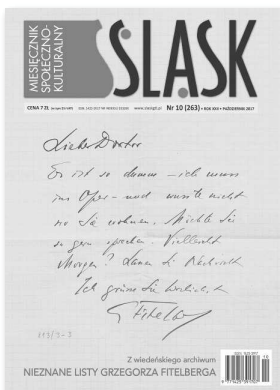 MIESIĘCZNIK
SPOŁECZNO-
KULTURALNY
ŚLĄSK
CENA 7 ZŁ
Nr 10 (263) • ROK XXIII • PAŹDZIERNIK 2017
Lieber Doctor
Es ist so dumm – ich muss
ins Oper – und wusste nicht
wo Sie wohnen. Möchte Sie
so gern sprechen. Vielleicht
Morgen?
Ich grüsse Sie herzlichst
G Fitelberg
Z wiedeńskiego archiwum
NIEZNANE LISTY GRZEGORZA FITELBERGA